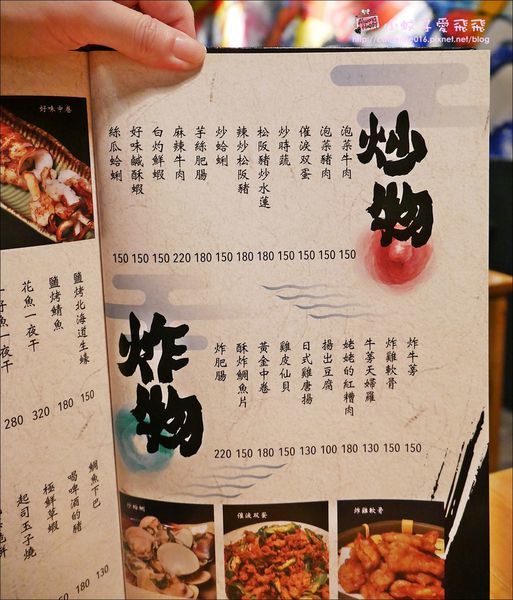 愛飛飛
炒物
泡菜牛肉
泡菜豬肉
催淚双蛋
炒時蔬
松阪豬炒水蓮
辣炒松阪豬
炒蛤蜊
芋絲肥腸
麻辣牛肉
白灼鮮蝦
好味鹹酥蝦
絲瓜蛤蜊
150 150 150 220 180 150 180 180 150 150 150 150
炸物
炸牛蒡
炸雞軟骨
牛蒡天婦羅
姥姥的紅糟肉
揚出豆腐
日式雞唐揚
雞皮仙貝
黃金中卷
酥炸鯛魚片
炸肥腸
220 150 180 150 130 100 180 130 150 150
炒蛤蜊
催淚双蛋
炸雞軟骨
好味中卷
鹽烤北海道生蠔
鹽烤鯖魚
花魚一夜干
280 320 180 150
鯛魚下巴
喝啤酒的豬
極鮮草蝦
起司玉子燒
50 150 180 130